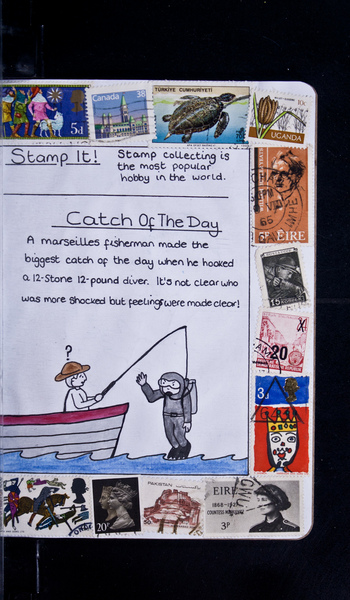 5d
Canada 38
TÜRKİYE CUMHURİYETİ
10c
UGANDA
Stamp It!
Stamp collecting is
the most popular
hobby in the world.
ÉIRE
Catch Of The Day
A marseilles fisherman made the
biggest catch of the day when he hooked
a 12-Stone 12-pound diver. It's not clear who
was more shocked but feelings were made clear!
15
20
3d
?
20P
PAKISTAN
EIRE
1868-1927
3p